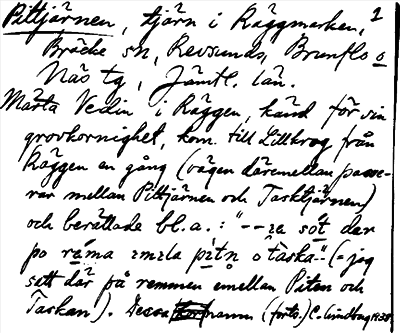 Pittjärnen, tjärn i Räggmarken, 1
Bräcke sn, Revsunds, Brunflo o
Näs tg, Jämtl. län.
Märta Vedin i Räggen, känd för sin
grovkornighet, kom till Lillkrog från
Räggen en gång (vägen däremellan passe-
rar mellan Pittjärnen och Tasktjärnen)
och berättade bl.a.: "--ɜa sót dar
po ráma ɜmɜla pìtn o taska" (=jag
satt där på remmen emellan Piten och
Taskan). Dessa namn (forts.) C. Lindberg 1938